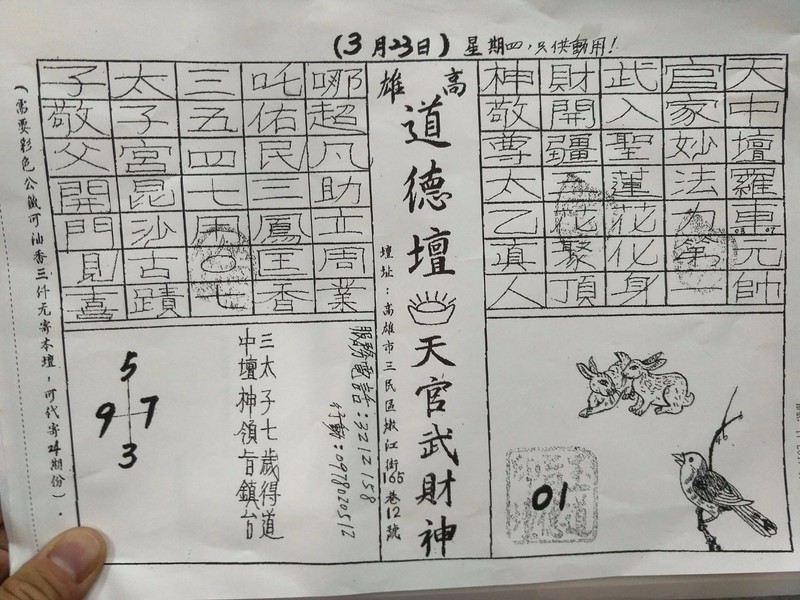 (3月23日)星期四,只供動用!
天中壇羅車元帥
官家妙法力第一
武入聖蓮花化身
財開疆五花聚頂
神敬尊太乙真人
高雄
道德壇
天官武財神
壇址:高雄市三民區嫩江街165巷12號
哪超凡助立周業
吒佑民三鳳匡香
三五四七
太子宮昆沙古蹟
子敬父開門見喜
01
服務電話:3212158
行動:0978020512
三太子七歲得道
中壇神領旨鎮台
5
9 7
3
(需要彩色公鐵可油香三仟元寄本壇,可代寄
期份)。